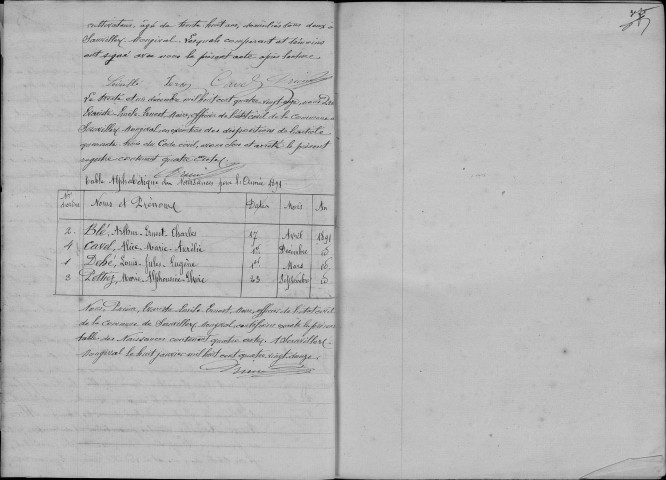 cultivateur, âgé de trente huit ans, domiciliés tous deux à
Sauvillers Mongival. Lesquels comparant et témoins
ont signé avec nous le présent acte après lecture
Cavel
Le trente et un décembre mil huit cent quatre vingt onze, nous
Emile Ernest, Maire, officier de l'état civil de la commune de
Sauvillers Mongival, en exécution des dispositions de l'article
quarante trois du Code civil, avons clos et arrêté le présent
registre contenant quatre actes
Table Alphabétique des Naissances pour l'Année 1891
Nos d'ordre
Noms et Prénoms
Dates
Mois
An
2 Blé, Arthur-Ernest-Charles 17 Avril 1891
4 Cavel, Alice-Marie-Aurélie 1er Décembre id
1 Debé, Louis-Jules-Eugène 1er Mars id
3 Marie-Alphonsine 23 Septembre id
Nous, Emile Ernest, Maire, officier de l'état civil
de la Commune de Sauvillers Mongival, certifions exacte la présente
table des Naissances contenant quatre actes. A Sauvillers-
Mongival le huit janvier mil huit cent quatre vingt douze.